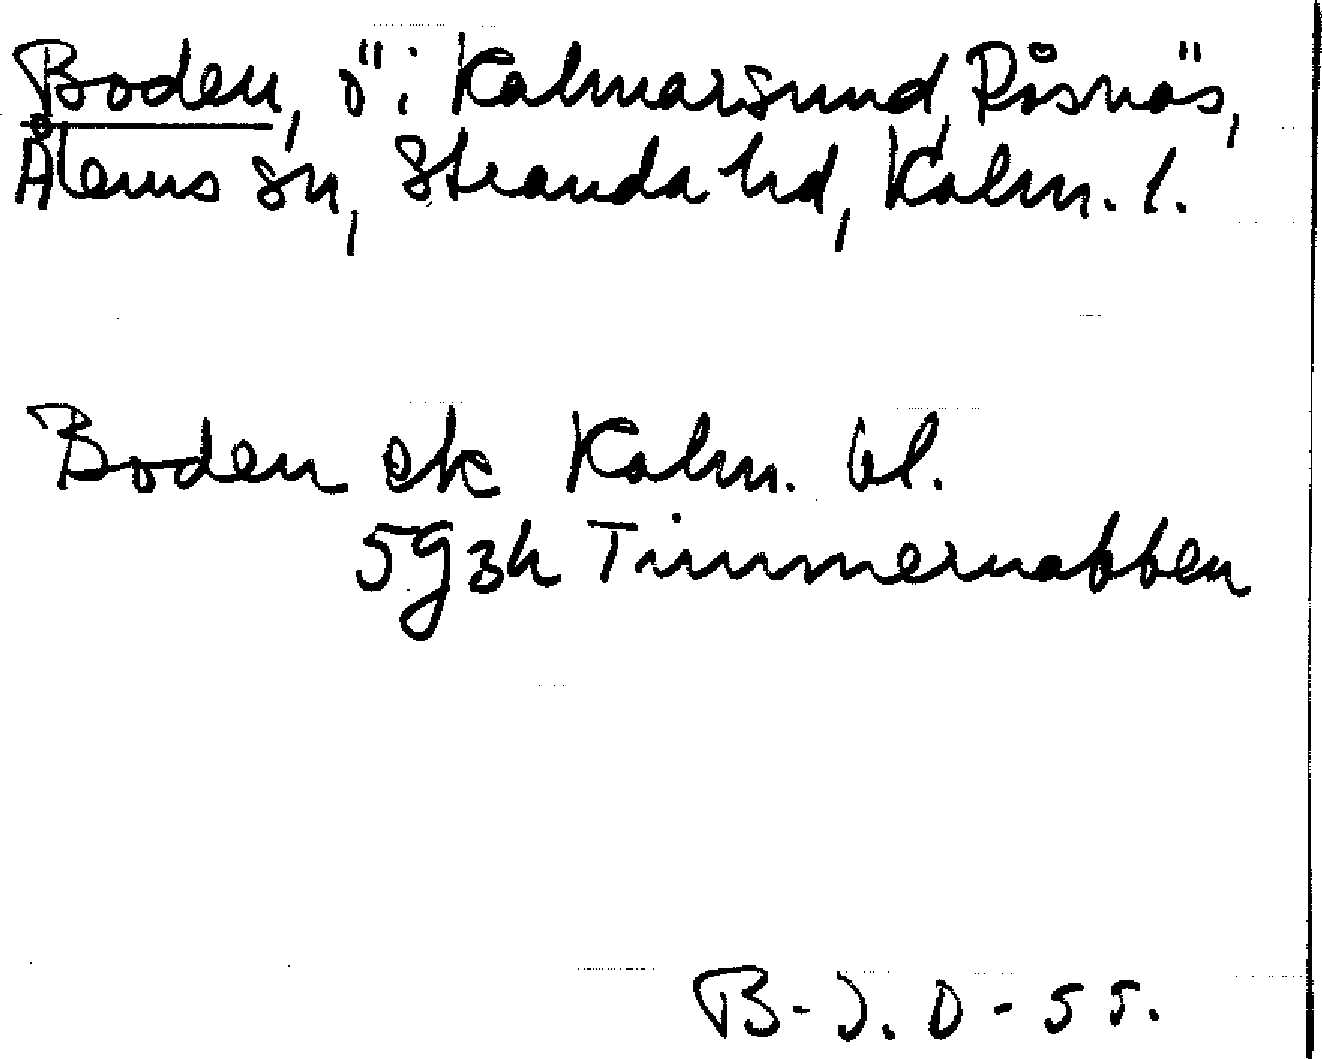 Boden, ö i Kalmarsund, Påsnäs,
Ålems sn, Stranda hd, Kalm. l.
Boden ek Kalm. bl.
5g3h Timmernabben
B-J. O-55.